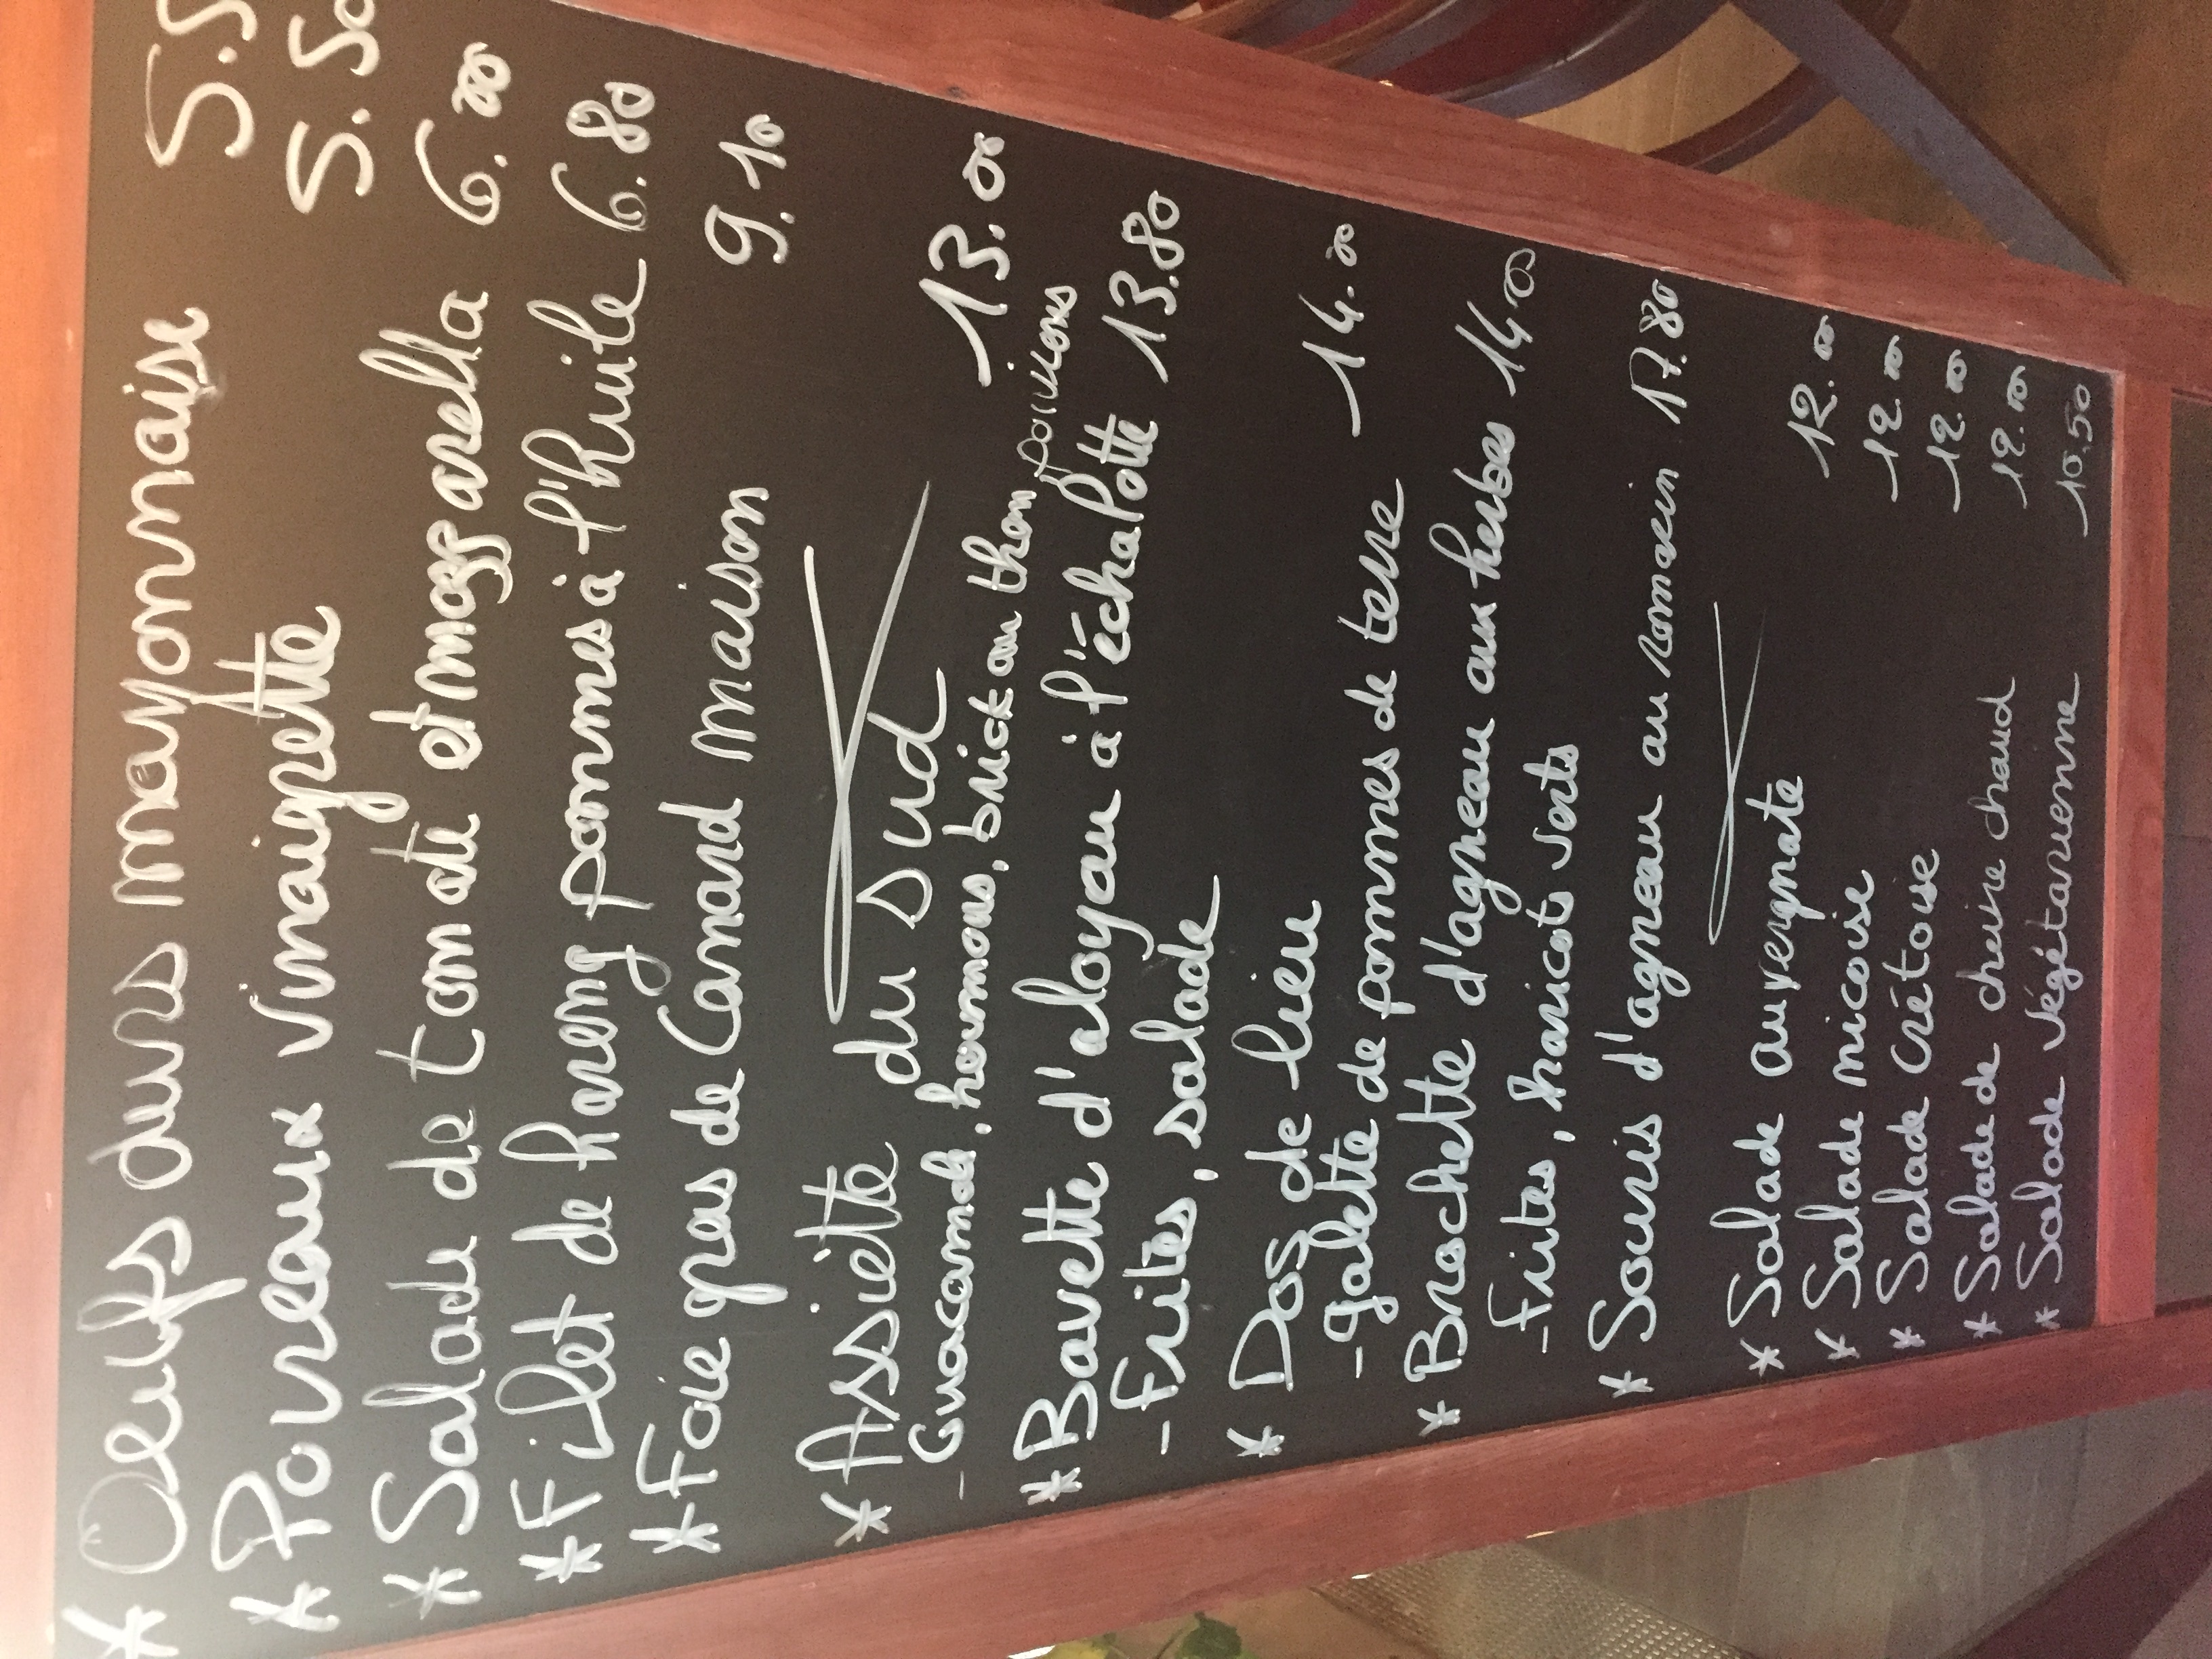 * Oeufs durs mayonnaise 5.5
* Poireaux vinaigrette 5.50
* Salade de tomate et mozzarella 6.00
* Filet de hareng pommes à l'huile 6.80
* Foie gras de Canard maison 9.10
* Assiette du sud 13.00
- Guacamole, houmous, brick au thon poivrons
* Bavette d'aloyau à l'échalotte 13.80
- Frites, salade
* Dos de lieu 14.00
- galette de pommes de terre
* Brochette d'agneau aux herbes 14.00
- Frites, haricots verts
* Souris d'agneau au romarin 17.80
* Salade auvergnate 12.00
* Salade nicoise 12.00
* Salade crétoise 12.00
* Salade de chèvre chaud 12.00
* Salade végétarienne 10.50